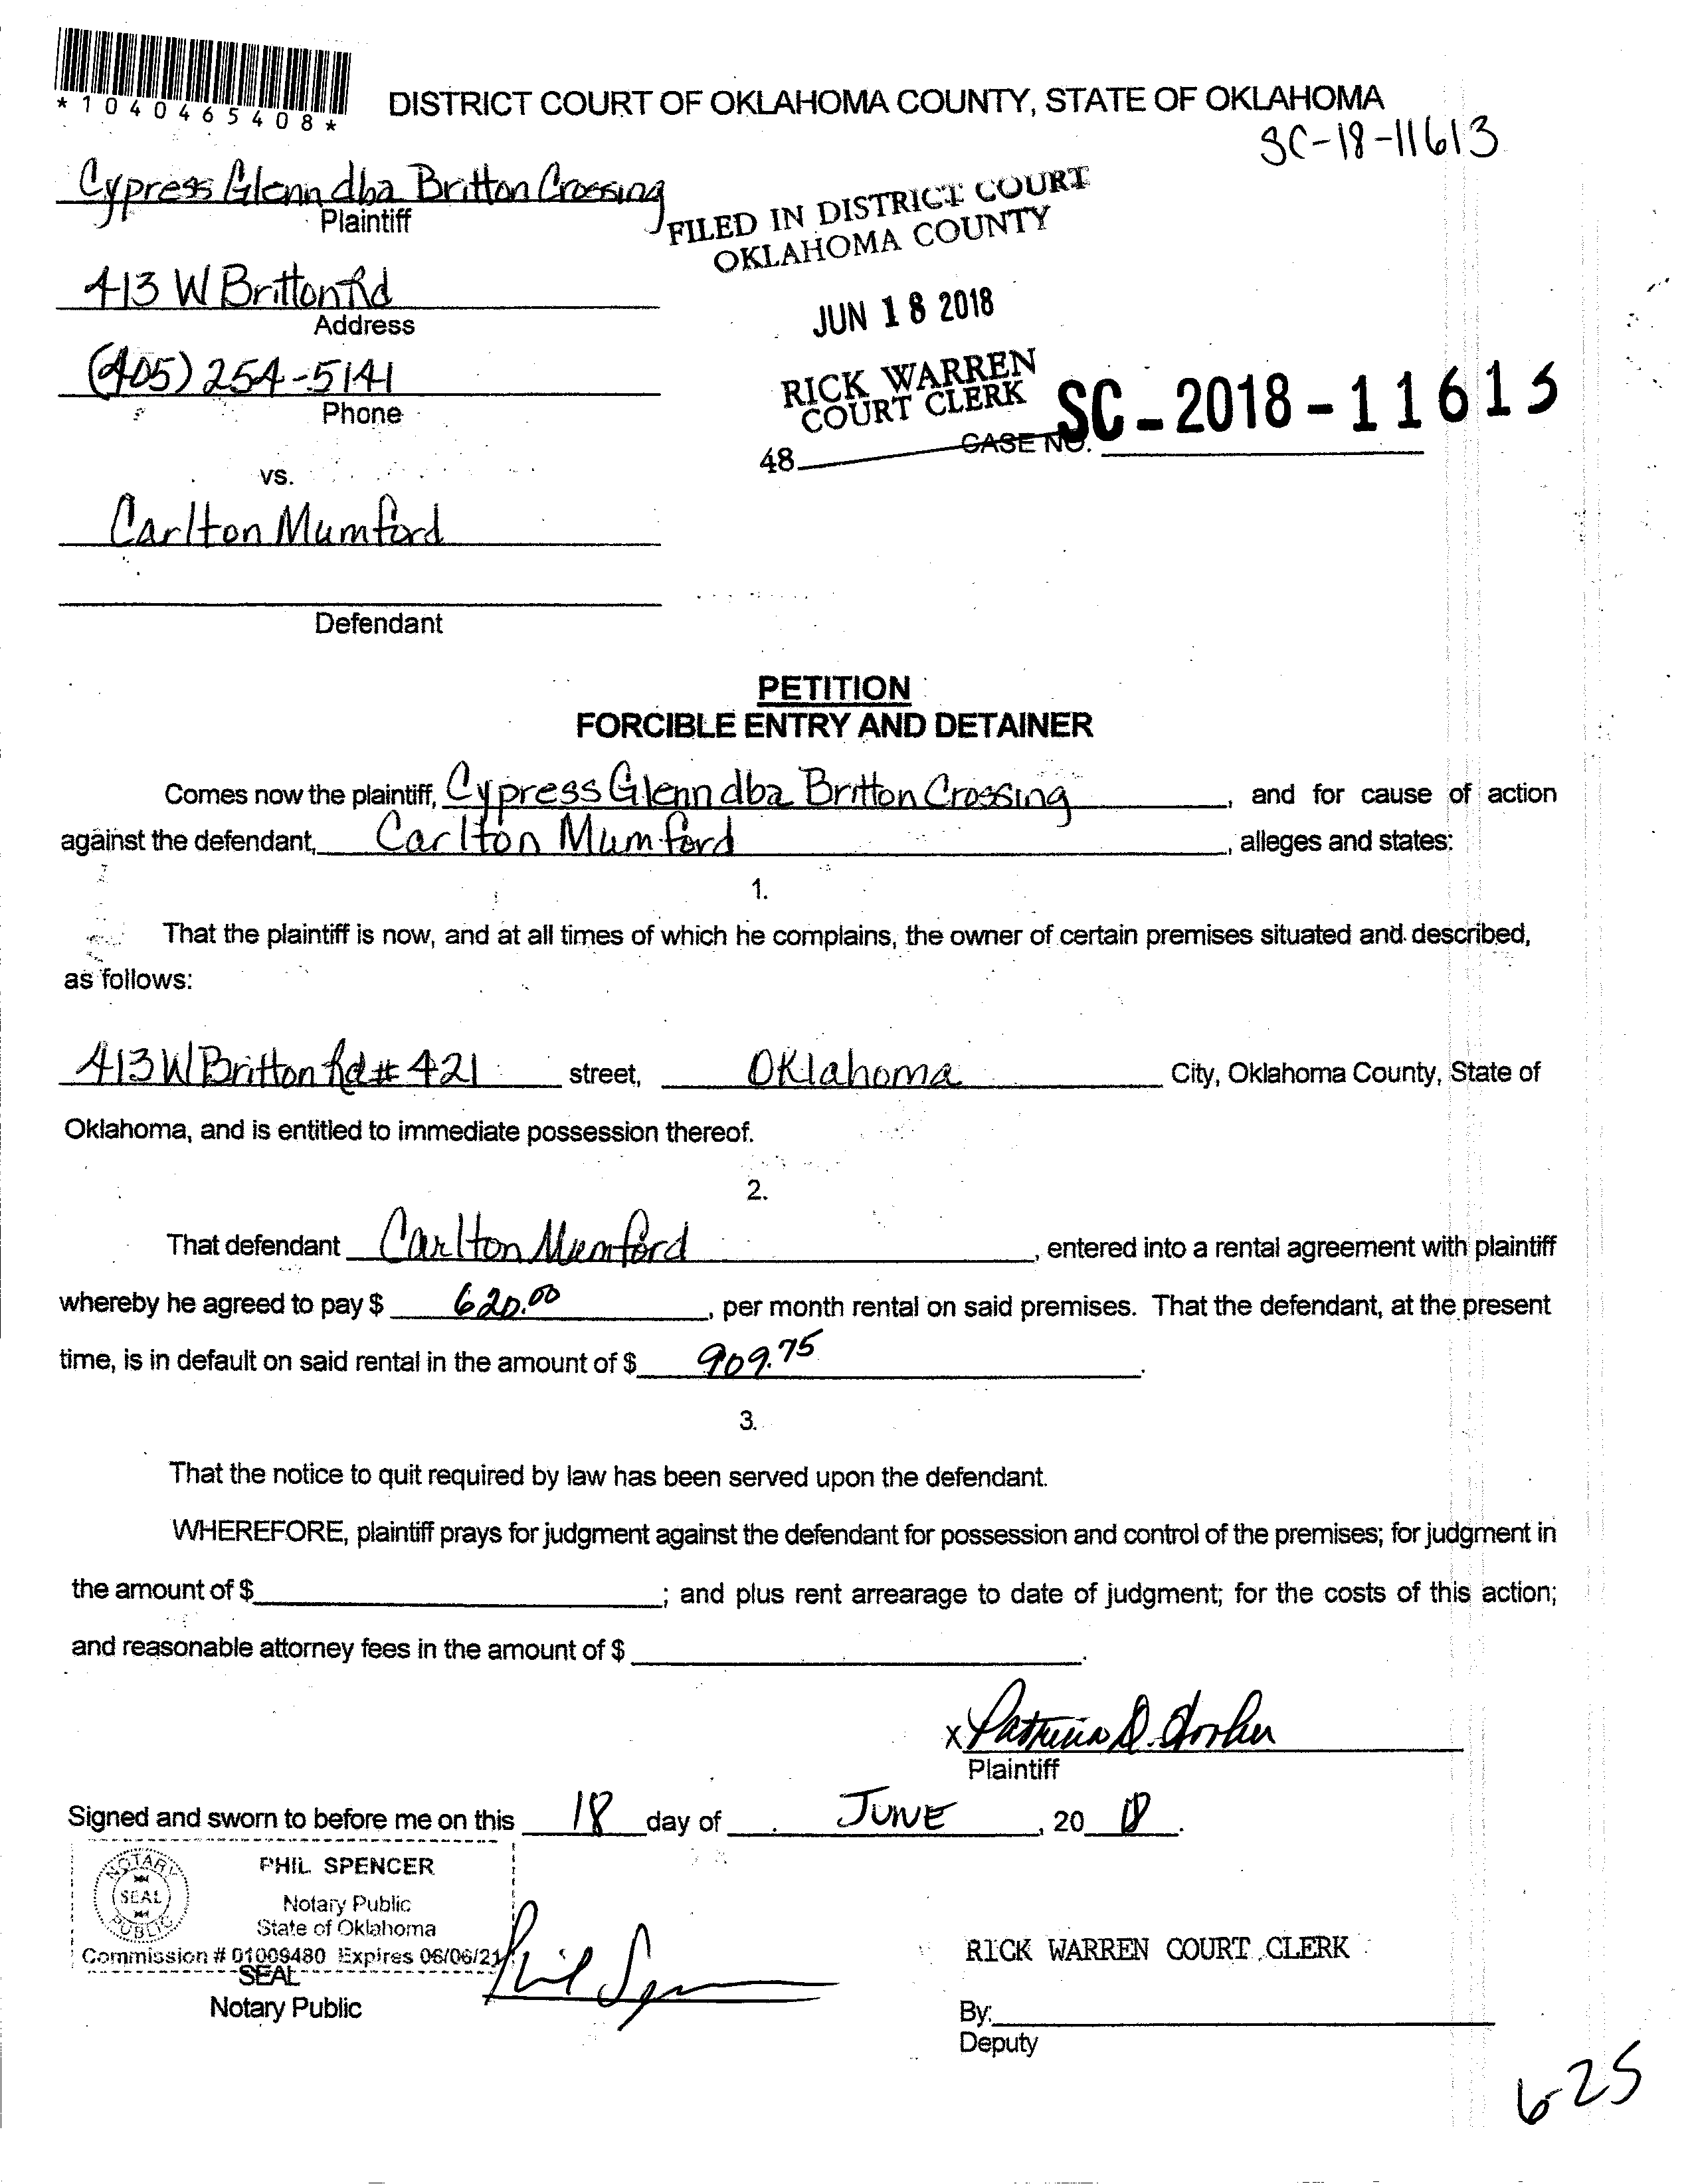 *1040465408*
DISTRICT COURT OF OKLAHOMA COUNTY, STATE OF OKLAHOMA
SC-18-11613
Cypress Glenn dba Britton Crossing
Plaintiff
FILED IN DISTRICT COURT
OKLAHOMA COUNTY
413 W Britton Rd
Address
JUN 18 2018
(405) 254-5141
Phone
RICK WARREN
COURT CLERK
SC-2018-11613
48
CASE NO.
vs.
Carlton Mumford
Defendant
PETITION
FORCIBLE ENTRY AND DETAINER
Comes now the plaintiff, Cypress Glenn dba Britton Crossing, and for cause of action
against the defendant, Carlton Mumford, alleges and states:
1.
That the plaintiff is now, and at all times of which he complains, the owner of certain premises situated and described,
as follows:
413 W Britton Rd # 421 street, Oklahoma City, Oklahoma County, State of
Oklahoma, and is entitled to immediate possession thereof.
2.
That defendant Carlton Mumford, entered into a rental agreement with plaintiff
whereby he agreed to pay $ 620.00, per month rental on said premises. That the defendant, at the present
time, is in default on said rental in the amount of $ 909.75.
3.
That the notice to quit required by law has been served upon the defendant.
WHEREFORE, plaintiff prays for judgment against the defendant for possession and control of the premises; for judgment in
the amount of $ ; and plus rent arrearage to date of judgment; for the costs of this action;
and reasonable attorney fees in the amount of $ .
x Patricia D.
Plaintiff
Signed and sworn to before me on this 18 day of JUNE, 20 18.
NOTARY PUBLIC SEAL
PHIL SPENCER
Notary Public
State of Oklahoma
Commission # 01009480 Expires 06/06/21
SEAL
Phil Spencer
Notary Public
RICK WARREN COURT CLERK
By:
Deputy
6-25